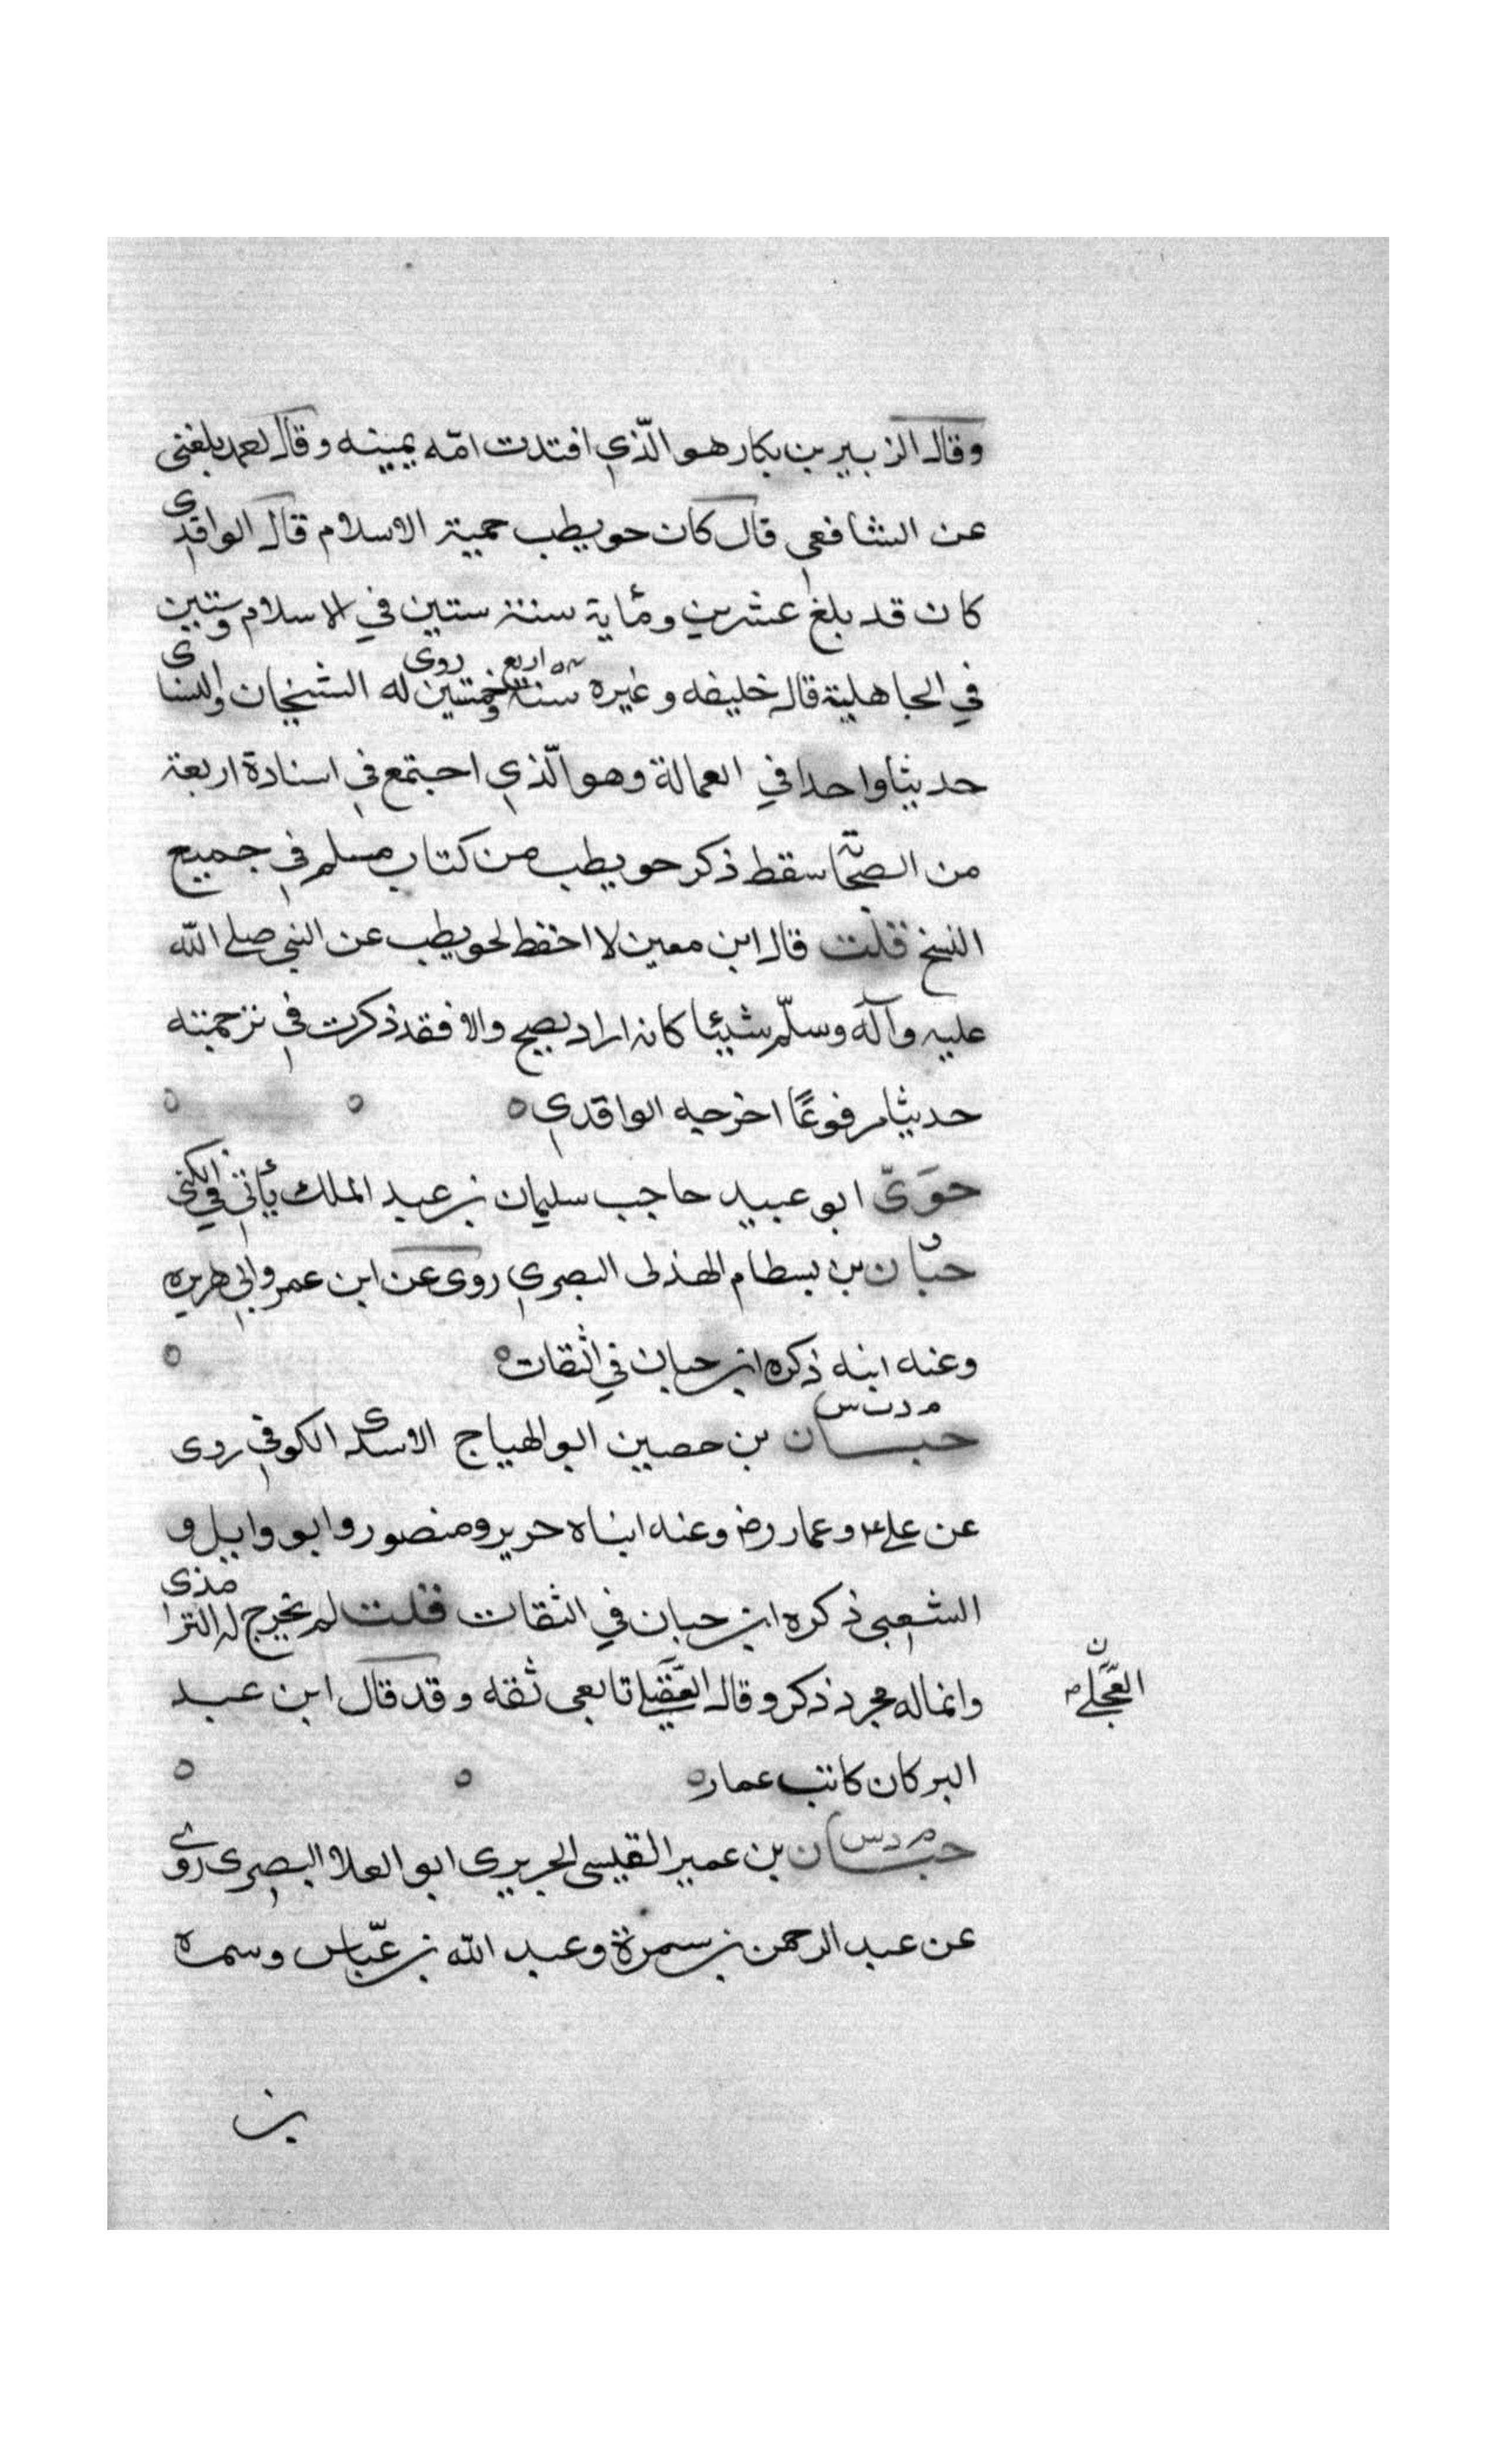 وقال الزبير بن بكار هو الّذي افتدت امّه يمينه وقال لعمد بلغنى
عن الشافعي قال كان حويطب حمية الاسلام قال الواقدى
كان قد بلغ عشرين ومأية سنة ستين في الاسلام وستين
في الجاهلية قال خليفه وغيره سنة اربع وخمسين روى له الشيخان والنساى
حديثا واحدا في العمالة وهو الّذي اجتمع في اسنادة اربعة
من الصحابة سقط ذكر حويطب من كتاب مسلم في جميع
النسخ قلت قال ابن معين لا احفظ لحويطب عن النبي صلى الله
عليه وآله وسلّم شيئا كانه اراد يصح والا فقد ذكرت في ترجمته
حديثا مرفوعًا اخرجه الواقدي ٥
حوَيّ ابو عبيد حاجب سليمان بن عبد الملك يأتي في الكنى
حبان بن بسطام الهذلى البصري روى عن ابن عمر وابي هريره
وعنه ابنه ذكره ابن حبان في الثقات ٥
م د ت س
حبان بن حصين ابو الهياج الاسدى الكوفي روى
عن علي وعمار رض وعنه ابناه جرير ومنصور وابو وايل و
الشعبي ذكره ابن حبان في الثقات قلت لم يخرج له الترمذى
وانما له مجرد ذكر وقال العقيلي تابعي ثقه وقد قال ابن عبد
العجلي ن
البر كان كاتب عمار ٥
م د س
حبان بن عمير القيسى الجريرى ابو العلا البصرى روى
عن عبد الرحمن بن سمرة وعبد الله بن عبّاس وسمره
بن